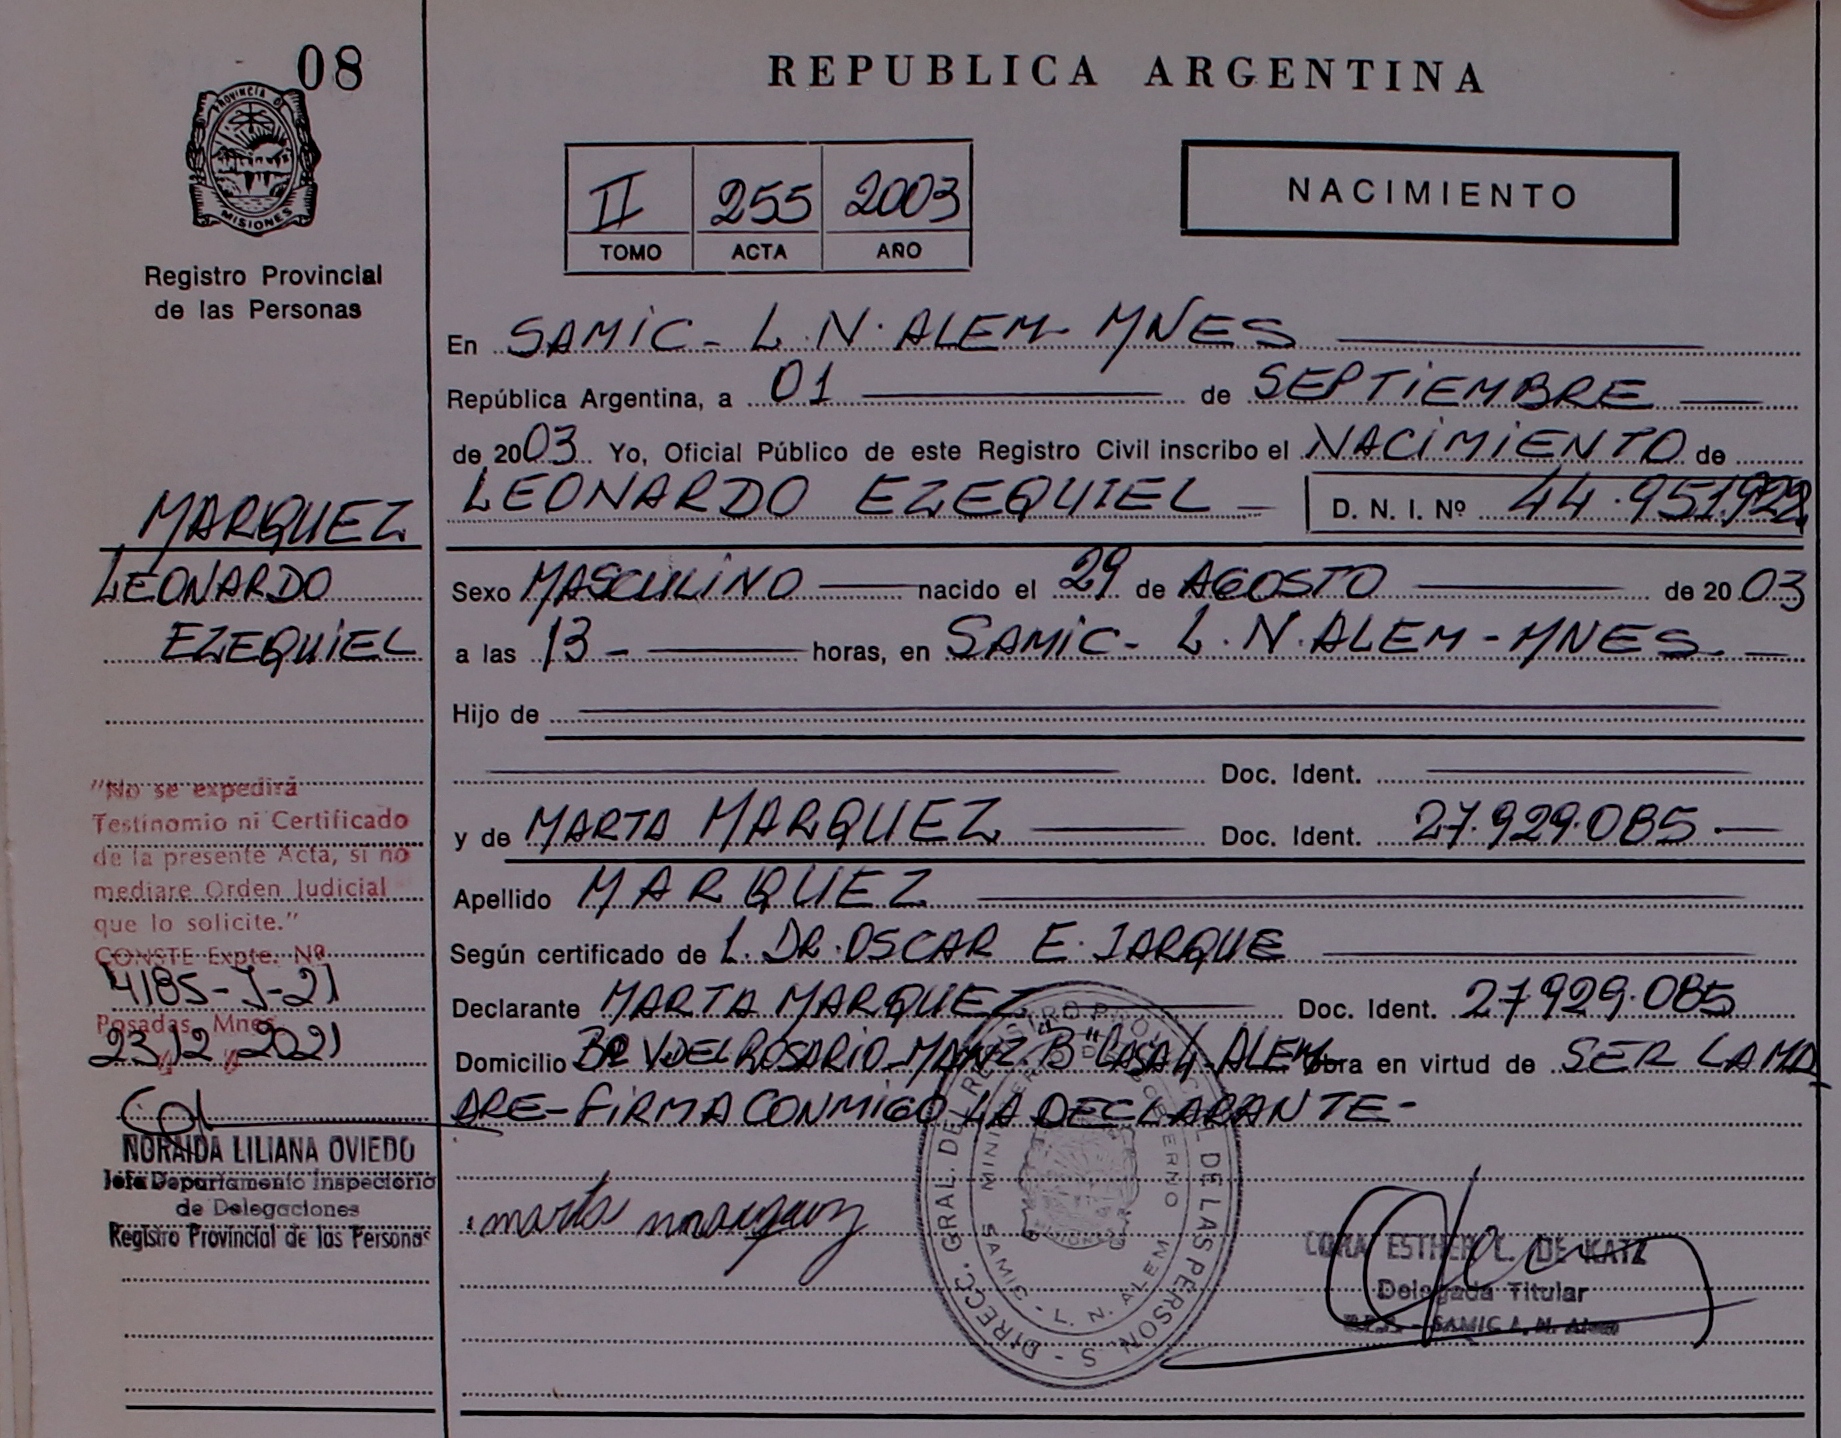 08
PROVINCIA D
MISIONES
Registro Provincial
de las Personas
REPUBLICA ARGENTINA
II 255 2003
TOMO ACTA AÑO
NACIMIENTO
En SAMIC - L.N. ALEM - MNES
República Argentina, a 01 de SEPTIEMBRE
de 2003 Yo, Oficial Público de este Registro Civil inscribo el NACIMIENTO de
LEONARDO EZEQUIEL - D. N. I. Nº 44.951.922
MARQUEZ
LEONARDO
EZEQUIEL
Sexo MASCULINO nacido el 29 de AGOSTO de 2003
a las 13 - horas, en SAMIC - L.N. ALEM - MNES. -
Hijo de
Doc. Ident.
y de MARTA MARQUEZ Doc. Ident. 27.929.085.-
Apellido MARQUEZ
Según certificado de L. DR. OSCAR E. JARQUE
Declarante MARTA MARQUEZ Doc. Ident. 27929.085
Domicilio Bº V. DEL ROSARIO - MANZ. "B" CASA 4 - ALEM obra en virtud de SER LA MA
DRE - FIRMA CONMIGO LA DECLARANTE -
"No se expedirá
Testinomio ni Certificado
de la presente Acta, si no
mediare Orden Judicial
que lo solicite."
CONSTE Expte. Nº
4185-J-21
Posadas, Mnes
23/12 2021
NORAIDA LILIANA OVIEDO
Jefa Departamento Inspectorio
de Delegaciones
Registro Provincial de las Personas
marta marquez
DIRECC. GRAL. DE REGISTRO PROVINCIAL DE LAS PERSONAS
MINISTERIO DE GOBIERNO
SAMIC - L. N. ALEM
MISIONES
ESTHER L. DE KATZ
Delegada Titular
SAMIC L. N. Alem